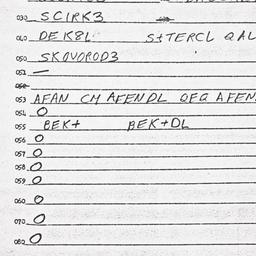 030 SCIRK3
040 DEK8L S+TERCL QAL
050 SKOVOROD3
051 —
052
053 AFAN CM AFENDL QFQ AFEN
054 O
055 BEK+ BEK+DL
056 O
057 O
058 O
059 O
060 O
070 O
080 O